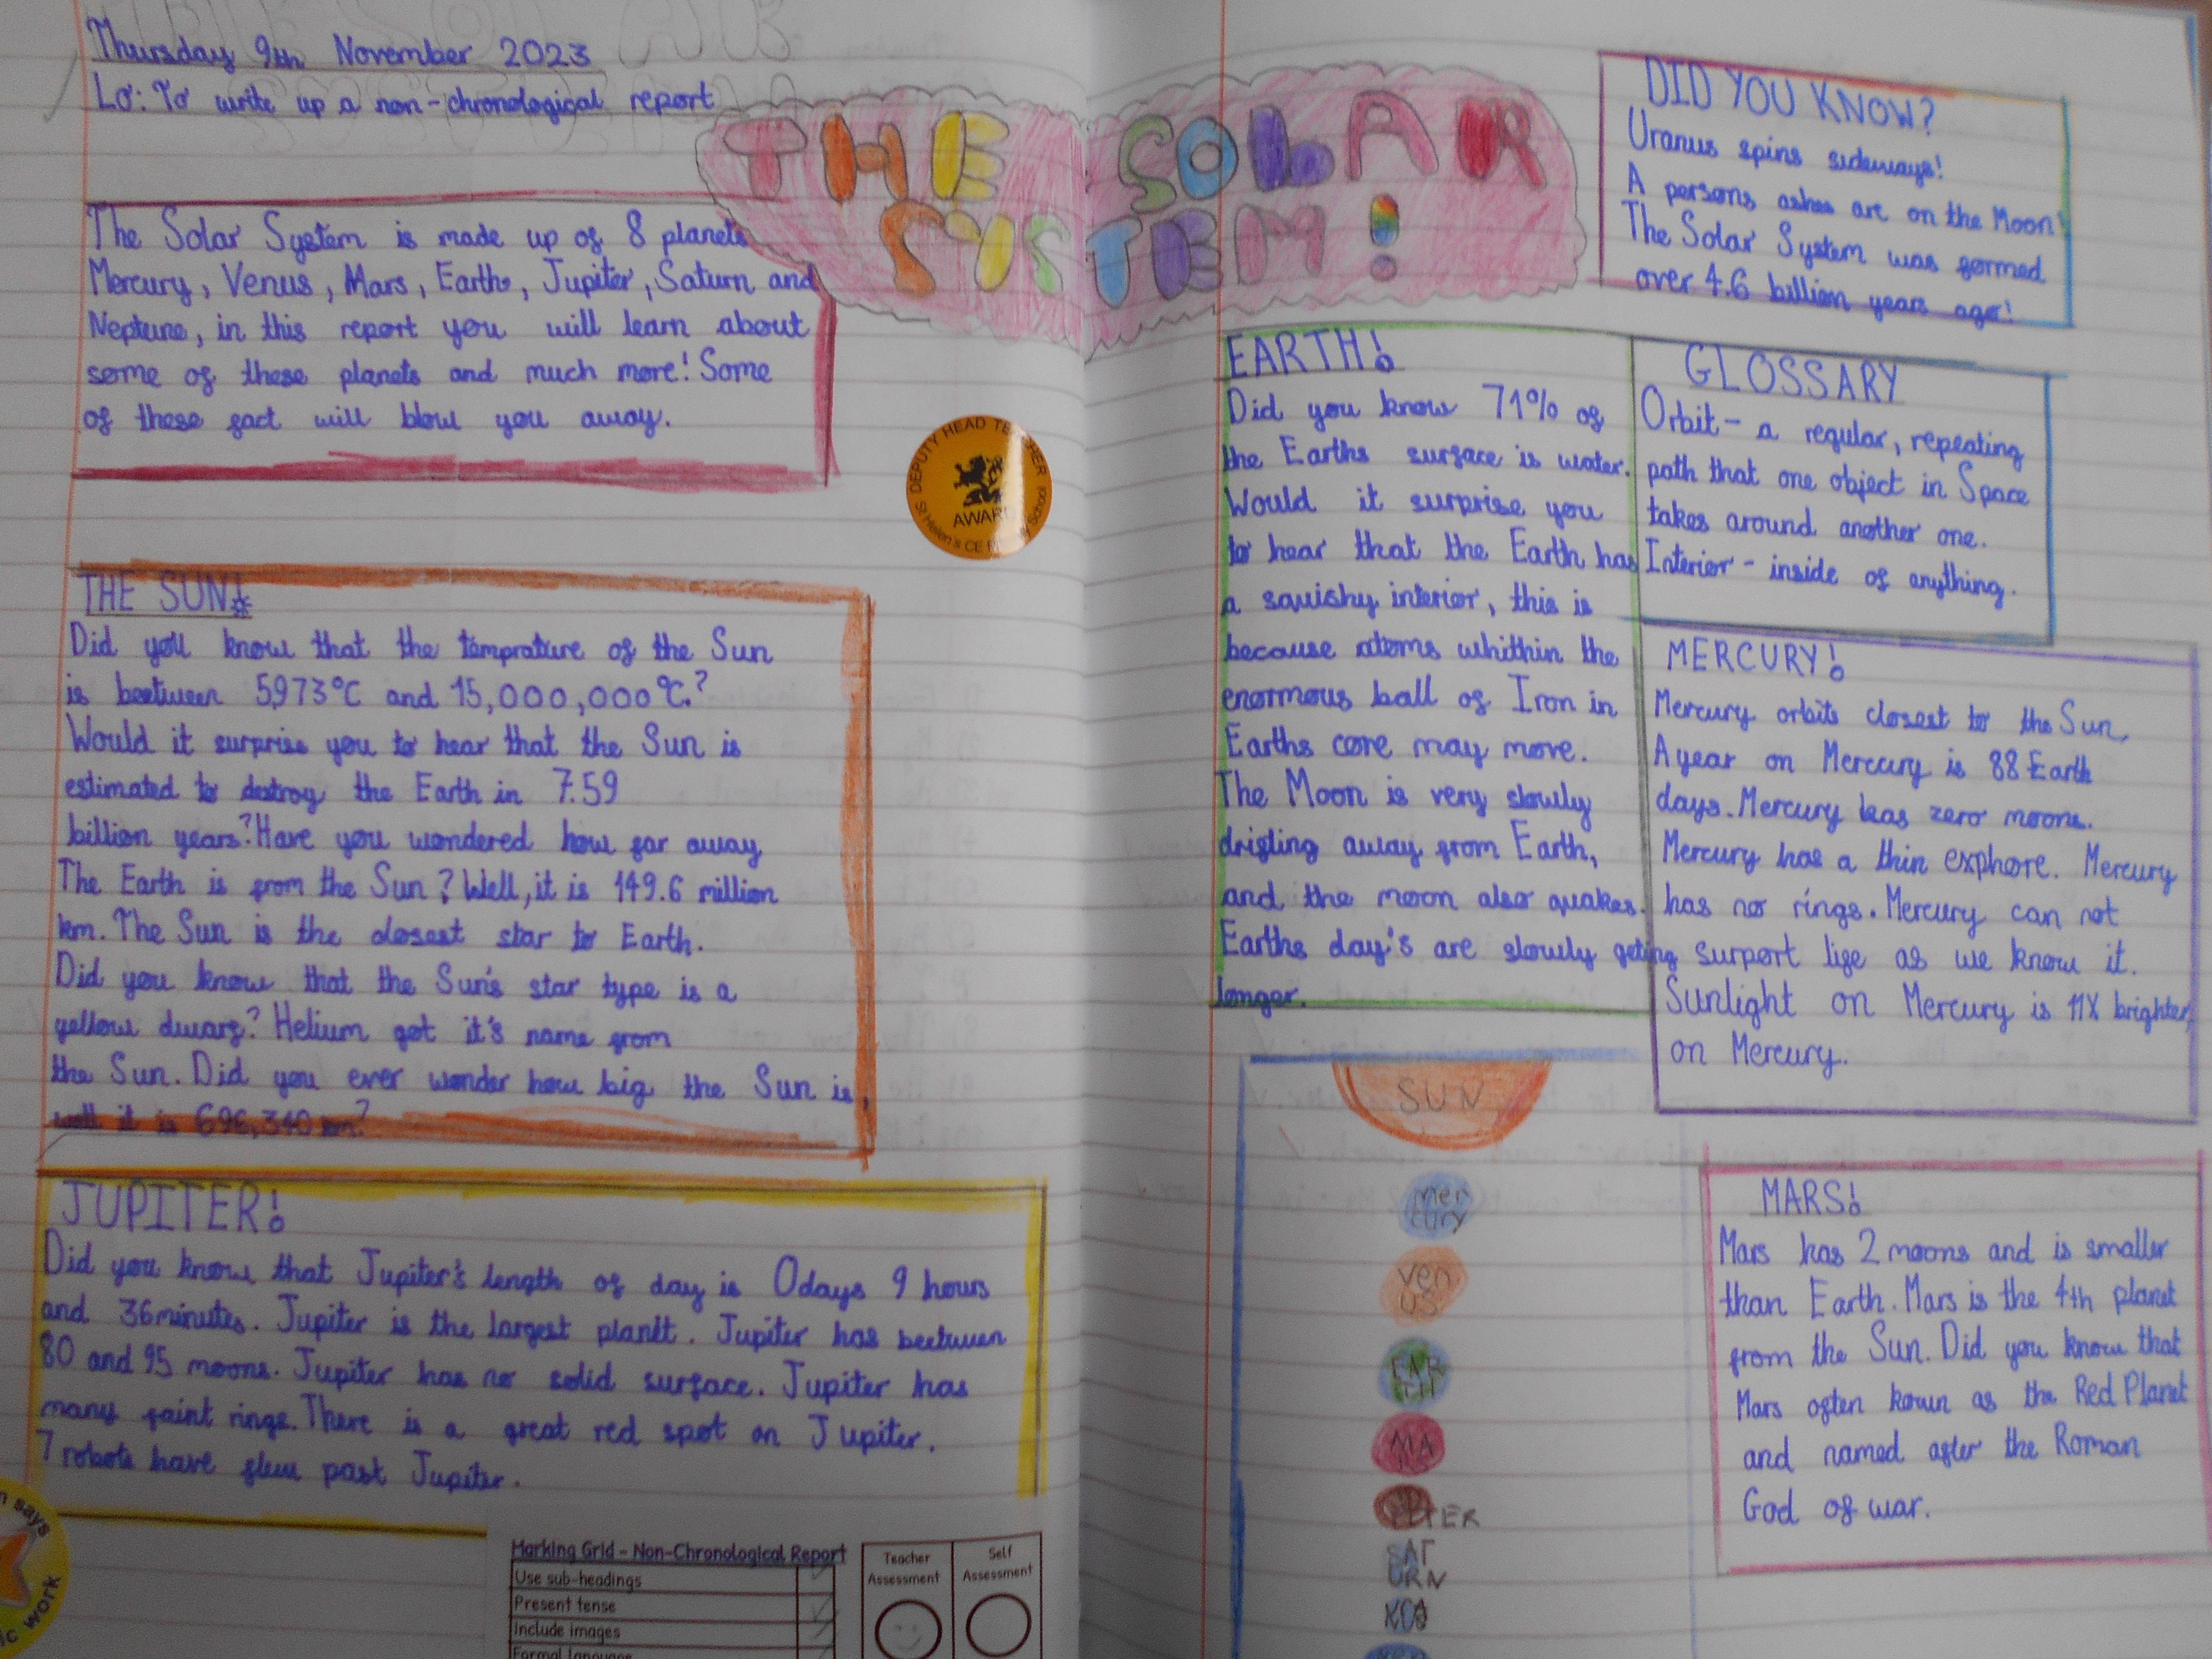 Thursday 9th November 2023
Lo: To write up a non-chronological report
THE SOLAR
SYSTEM!
The Solar System is made up of 8 planets
Mercury, Venus, Mars, Earth, Jupiter, Saturn and
Neptune, in this report you will learn about
some of these planets and much more! Some
of these fact will blow you away.
DEPUTY HEAD TEACHER
AWARD
St Helen's CE School
THE SUN!
Did you know that the temprature of the Sun
is beetween 5973°C and 15,000,000°C?
Would it surprise you to hear that the Sun is
estimated to destroy the Earth in 7.59
billion years? Have you wondered how far away
The Earth is from the Sun? Well, it is 149.6 million
km. The Sun is the closest star to Earth.
Did you know that the Sun's star type is a
yellow dwarf? Helium got it's name from
the Sun. Did you ever wonder how big the Sun is,
well it is 696,340 km?
JUPITER!
Did you know that Jupiter's length of day is 0days 9 hours
and 36minutes. Jupiter is the largest planet. Jupiter has beetween
80 and 95 moons. Jupiter has no solid surface. Jupiter has
many faint rings. There is a great red spot on Jupiter.
7 robots have flew past Jupiter.
says
work
Marking Grid - Non-Chronological Report
Use sub-headings
Present tense
Include images
Formal language
Teacher
Assessment
Self
Assessment
DID YOU KNOW?
Uranus spins sideways!
A persons ashes are on the Moon!
The Solar System was formed
over 4.6 billion years ago!
EARTH!
Did you know 71% of
the Earths surface is water.
Would it surprise you
to hear that the Earth has
a squishy interior, this is
because atoms whithin the
enormous ball of Iron in
Earths core may move.
The Moon is very slowly
drifting away from Earth,
and the moon also quakes.
Earths day's are slowly geting
longer.
GLOSSARY
Orbit - a regular, repeating
path that one object in Space
takes around another one.
Interior - inside of anything.
MERCURY!
Mercury orbits closest to the Sun,
A year on Mercury is 88 Earth
days. Mercury has zero moons.
Mercury has a thin exphore. Mercury
has no rings. Mercury can not
surport life as we know it.
Sunlight on Mercury is 11X brighter,
on Mercury.
SUN
mer
cury
ven
us
EAR
TH
MA
SAT
URN
MARS!
Mars has 2 moons and is smaller
than Earth. Mars is the 4th planet
from the Sun. Did you know that
Mars often kown as the Red Planet
and named after the Roman
God of war.